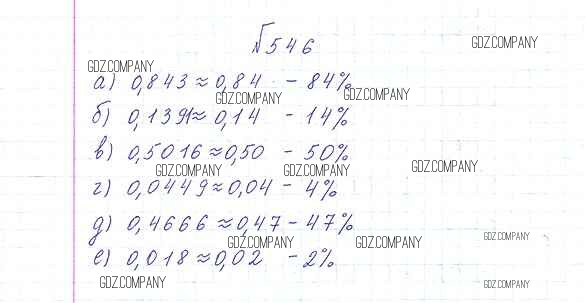 №546
GDZ.COMPANY
GDZ.COMPANY
а) 0,843≈0,84 - 84%
GDZ.COMPANY
GDZ.COMPANY
б) 0,1391≈0,14 - 14%
в) 0,5016≈0,50 - 50%
GDZ.COMPANY
GDZ.COMPANY
GDZ.COMPANY
г) 0,0449≈0,04 - 4%
д) 0,4666≈0,47 - 47%
GDZ.COMPANY
GDZ.COMPANY
GDZ.COMPANY
е) 0,018≈0,02 - 2%
GDZ.COMPANY
GDZ.COMPANY